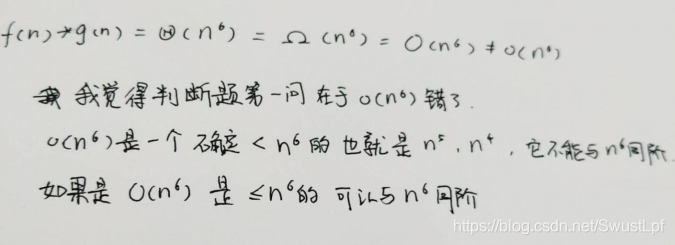 f(n)+g(n) = Θ(n⁶) = Ω(n⁶) = O(n⁶) ≠ o(n⁶)
我觉得判断题第一问在于 o(n⁶) 错了.
o(n⁶)是一个 确定 < n⁶ 的 也就是 n⁵, n⁴, 它不能与 n⁶同阶.
如果是 O(n⁶) 是 ≤ n⁶的 可以与 n⁶ 同阶
https://blog.csdn.net/SwustLpf